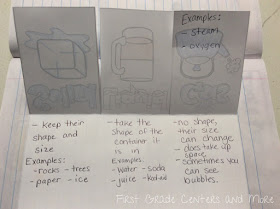 Examples:
- steam
- oxygen
Solid
Gas
- keep their
shape and
size
Examples:
- rocks - trees
- paper - ice
- take the
shape of the
container it
is in
Examples:
- water - soda
- juice - kool-aid
- no shape,
their size
can change
- does take up
space
- sometimes you
can see
bubbles.
First Grade Centers and More